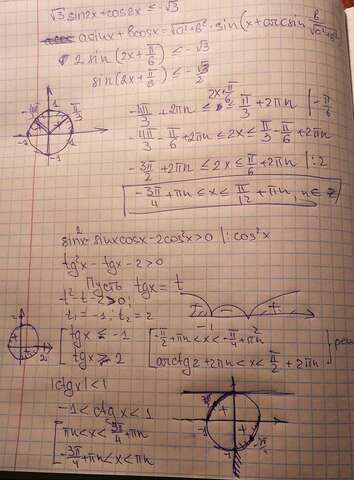 √3 sin2x + cos2x ≤ -√3
asinx + bcosx = √(a²+b²) · sin(x + arcsin b/√(a²+b²))
2 sin(2x + π/6) ≤ -√3
sin(2x + π/6) ≤ -√3/2
-4π/3 + 2πn ≤ 2x + π/6 ≤ π/3 + 2πn | -π/6
-4π/3 - π/6 + 2πn ≤ 2x ≤ π/3 - π/6 + 2πn
-3π/2 + 2πn ≤ 2x ≤ π/6 + 2πn | :2
-3π/4 + πn ≤ x ≤ π/12 + πn, n ∈ Z
sin²x - sinxcosx - 2cos²x > 0 | : cos²x
tg²x - tgx - 2 > 0
Пусть tgx = t
t² - t - 2 > 0;
t₁ = -1; t₂ = 2
tgx ≤ -1
tgx ≥ 2
-π/2 + πn < x < -π/4 + πn
arctg2 + 2πn < x < π/2 + 2πn
|ctgx| < 1
-1 < ctgx < 1
πn < x < 3π/4 + πn
-3π/4 + πn < x < πn